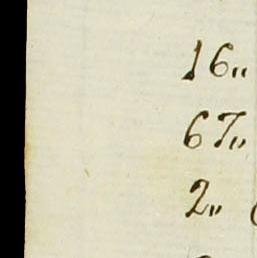 16„
67„
2„